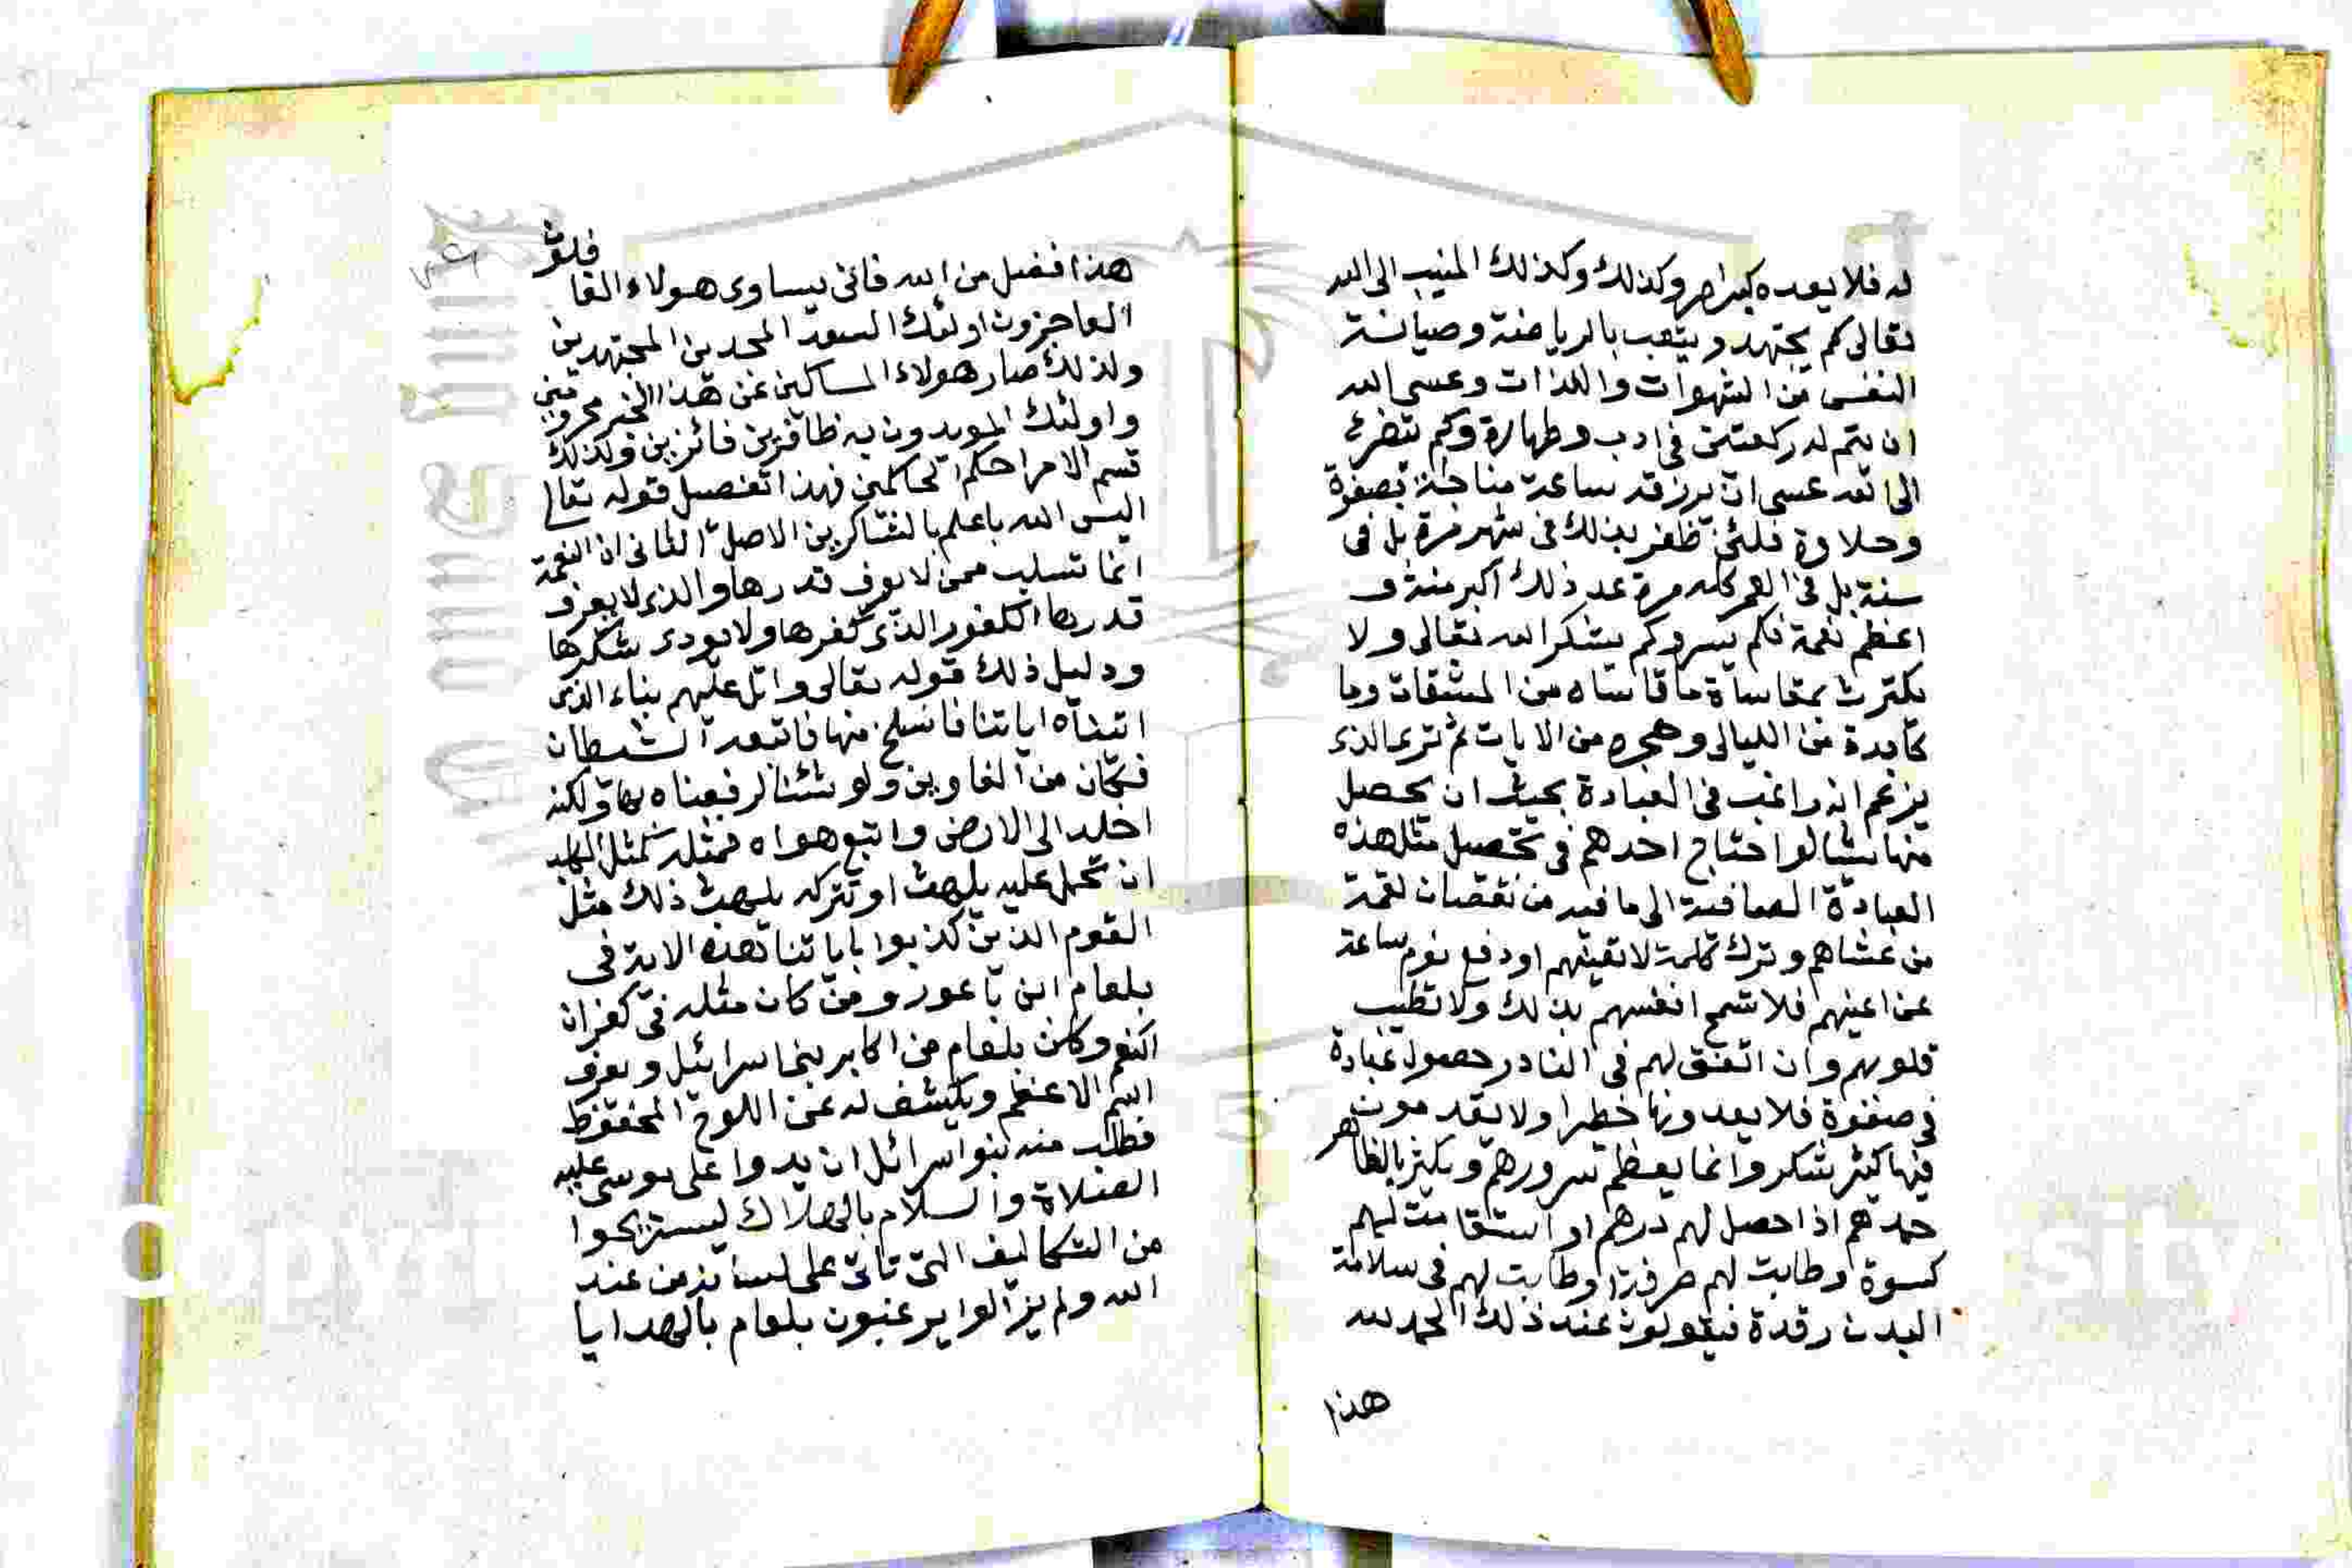 له فلا يعده كبير امر وكذلك وكذلك المنيب الى الله
تعالى كم يجتهد ويتعب بالرياضة وصيانة
النفس من الشهوات واللذات وعسى الله
ان يتم له ركعتين في ادب وطهارة وكم يتضرع
الى الله عسى ان يرزقه ساعة مناجاة بصفوة
وحلاوة فلئن ظفر بذلك في شهر مرة بل في
سنة بل في العمر كله مرة عد ذلك اكبر منة و
اعظم نعمة فكم يسر وكم يشكر الله تعالى ولا
يكترث بمقاساة ما قاساه من المشقات وما
كابدة من الليالى وهجره من الايات ثم ترى الذى
يزعم انه راغب في العبادة بحيث ان يحصل
منها شيئا لو احتاج احدهم في تحصيل مثل هذه
العبادة الصافية الى ما فيه من نقصان لقمة
من عشاهم وترك كلمة لا تعينهم او دفع نوم ساعة
عن اعينهم فلا تسمح انفسهم بذلك ولا تطيب
قلوبهم وان اتفق لهم في النادر حصول عبادة
في صفوة فلا يعدونها خطيرا ولا يقدمون
فيها كثير شكر وانما يعظم سرورهم ويكثر بالظاهر
حمدهم اذا حصل لهم درهم او استقامت لهم
كسوة وطابت لهم مرقة او طابت لهم في سلامة
البدن رقدة فيقولون عند ذلك الحمد لله
هذا
هذا افضل من الله فانى يساوى هولاء الغافلون
العاجزون اولئك السعدا المجدين المجتهدين
ولذلك صار هولاء المساكين عن هذا الخير محرومين
واولئك المويدون به ظافرين فائزين ولذلك
قسم الامر احكم الحاكمين فهذا تفصيل قوله تعالى
اليس الله باعلم بالشاكرين الاصل الثانى ان النعمة
انما تسلب ممن لا يعرف قدرها والذى لا يعرف
قدرها الكفور الذى كفرها ولا يودى شكرها
ودليل ذلك قوله تعالى واتل عليهم بناء الذى
اتيناه اياتنا فانسلخ منها فاتبعه الشيطان
فكان من الغاوين ولو شئنا لرفعناه بها ولكنه
اخلد الى الارض واتبع هواه فمثله كمثل الكلب
ان تحمل عليه يلهث او تتركه يلهث ذلك مثل
القوم الذين كذبوا باياتنا فهذه الاية في
بلعام ابن باعور ومن كان مثله في كفران
النعم وكان بلعام من اكابر بنى اسرائيل ويعرف
اسم الاعظم ويكشف له عن اللوح المحفوظ
فطلب منه بنوا اسرائل ان يدوا على موسى عليه
الصلاة والسلام بالهلاك ليستريحوا
من التكاليف التى تاتى على لسانه من عند
الله ولم يزالوا يرغبون بلعام بالهدايا